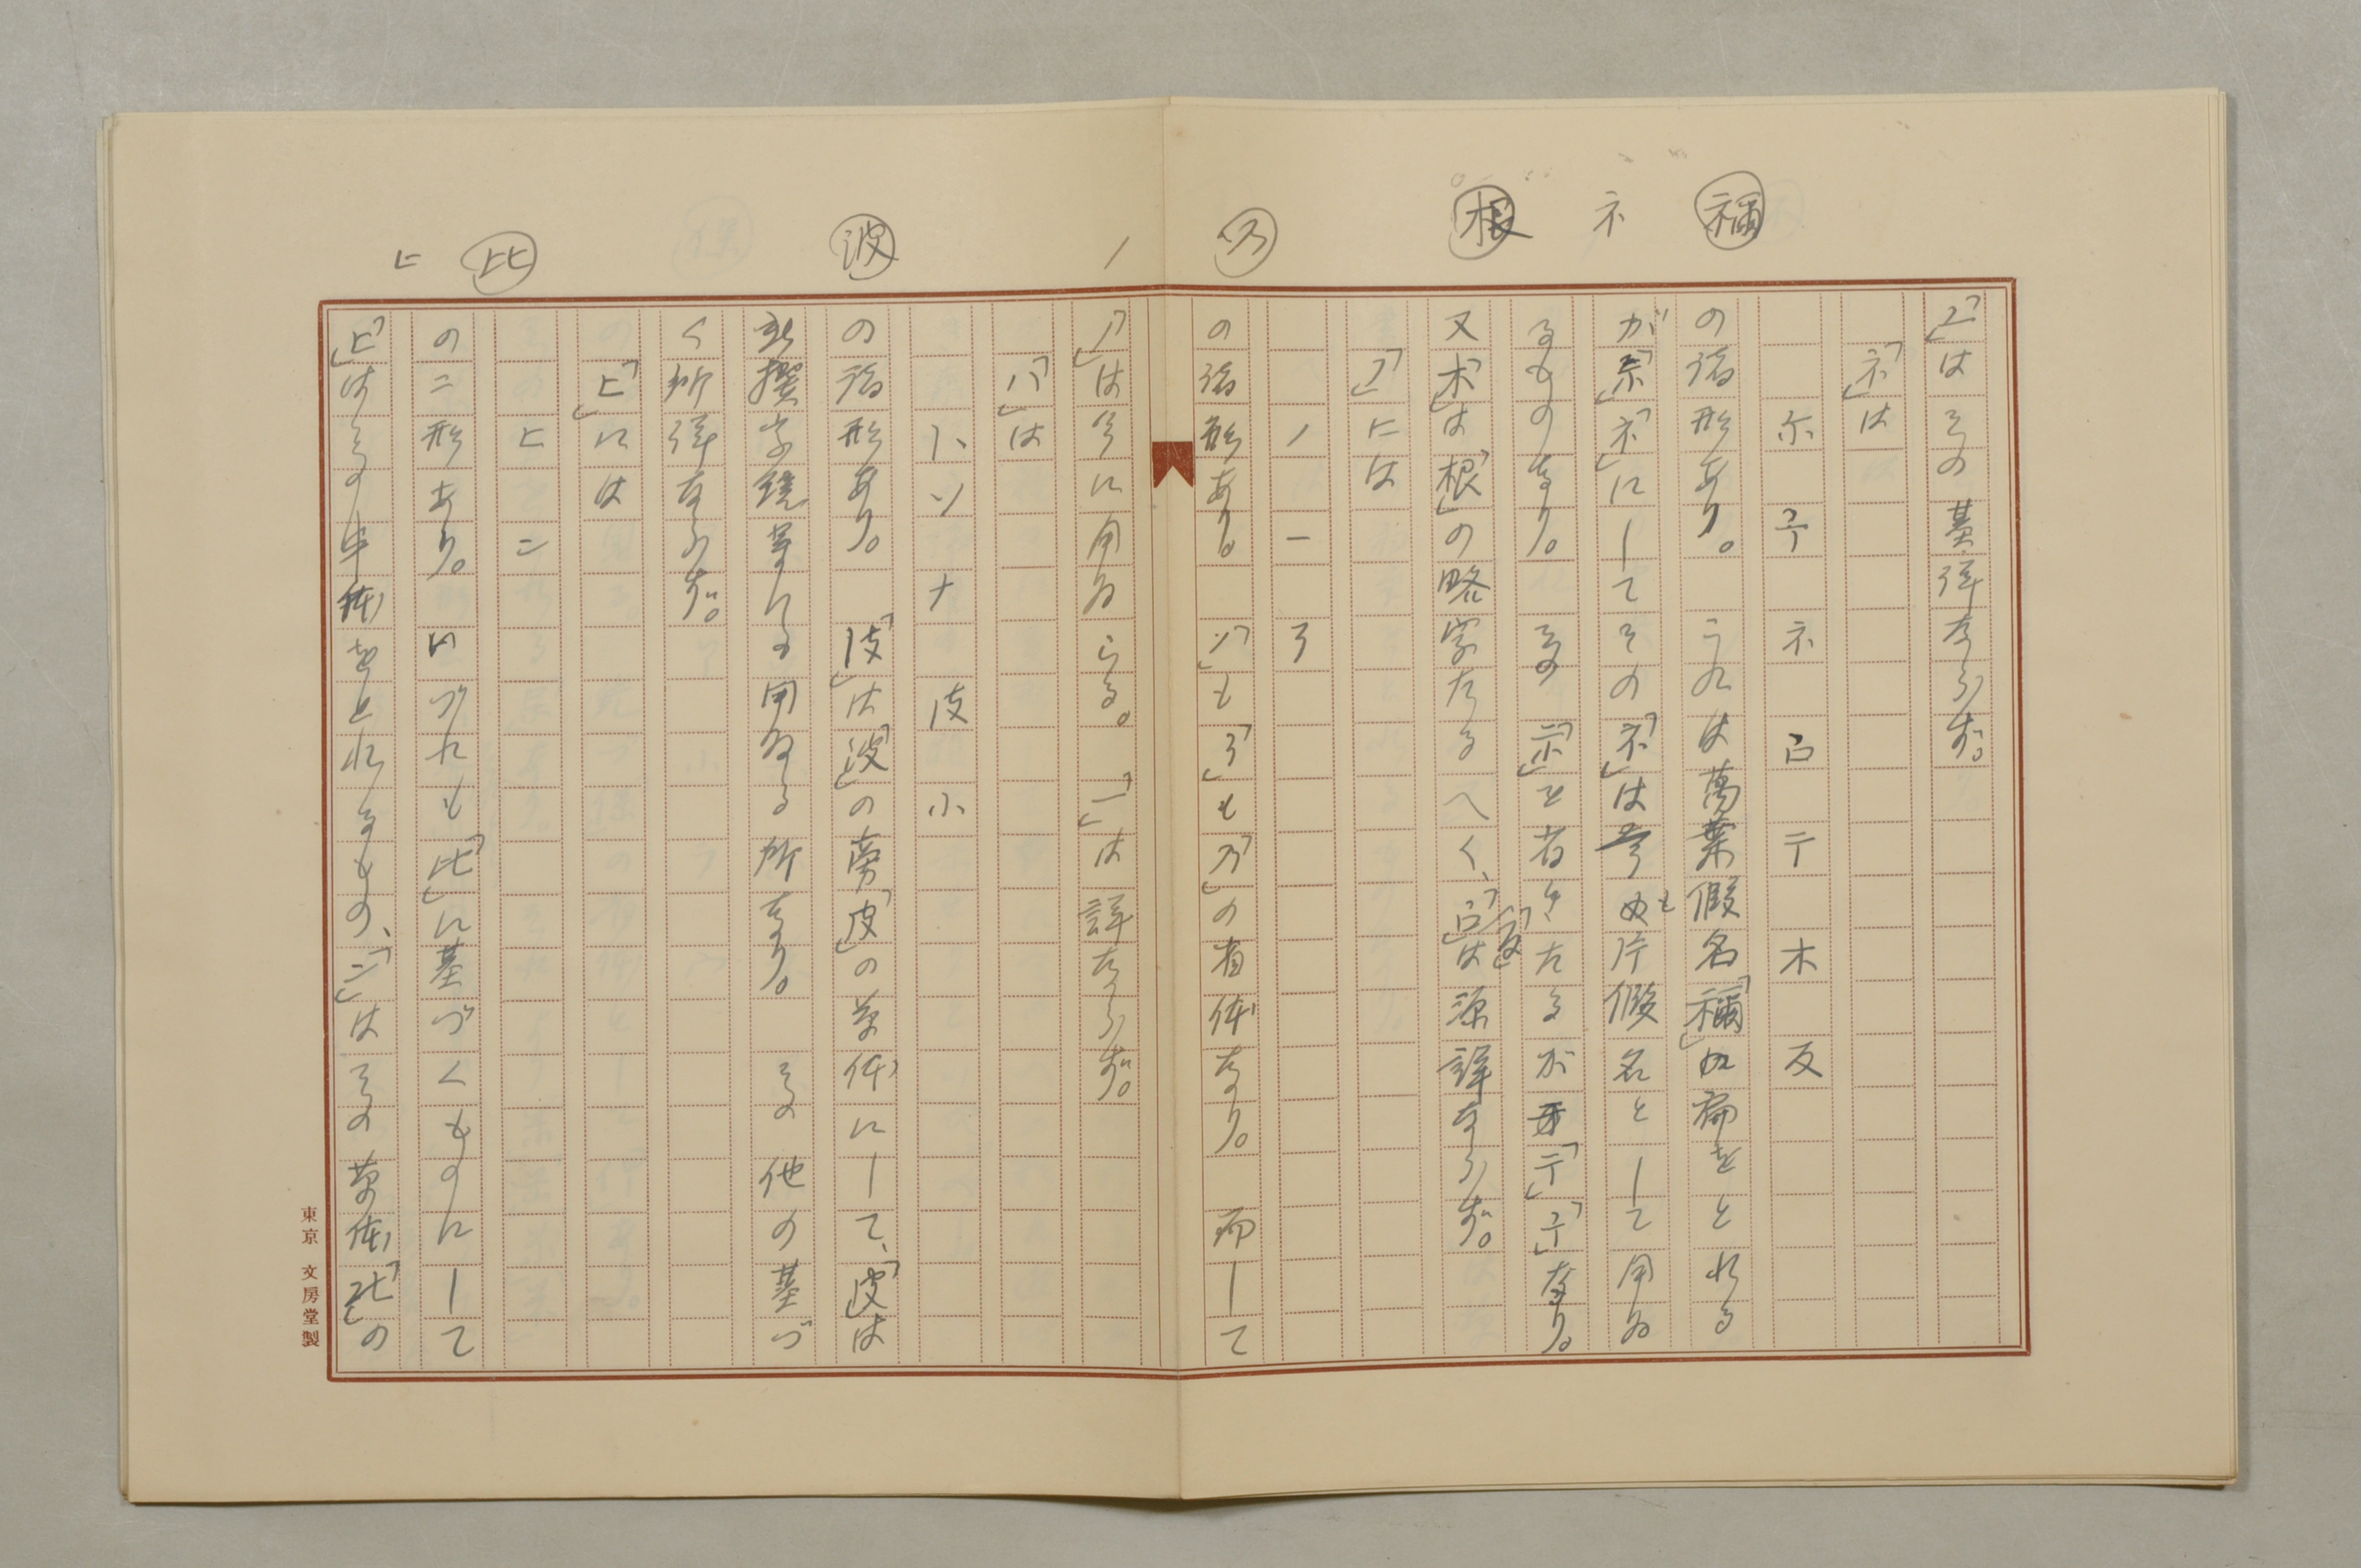 禰
ネ
根
乃
ノ
波
比
ヒ
「」はその基詳ならず。
「ネ」は
尓 子 ネ 𠮷 テ 木 反
の諸形あり。うれは萬葉假名「禰」の扁をとれる
が「ネ」にしてその「ネ」は今も片假名として用ゐ
るものなり。その「示」を省きたるが「テ」「子」なり。
又「木」は「根」の略字たるへく、「反」は源詳ならず。
「ノ」には
ノ 一 ろ
の諸形あり。「ノ」も「ろ」も「乃」の省体なり。而して
「ノ」は今に用ゐらる。「一」は詳ならず。
「ハ」は
ハ ソ ナ 波 小
の諸形あり。「波」は「波」の旁「皮」の草体にして、「皮」は
新撰字鏡等にも用ゐる所なり。その他の基づ
く所詳ならず。
「ヒ」には
ヒ ニ
の二形あり。いづれも「比」に基づくものにして
「ヒ」はその半体をとれるもの、「ニ」はその草体「比」の
東京 文房堂製